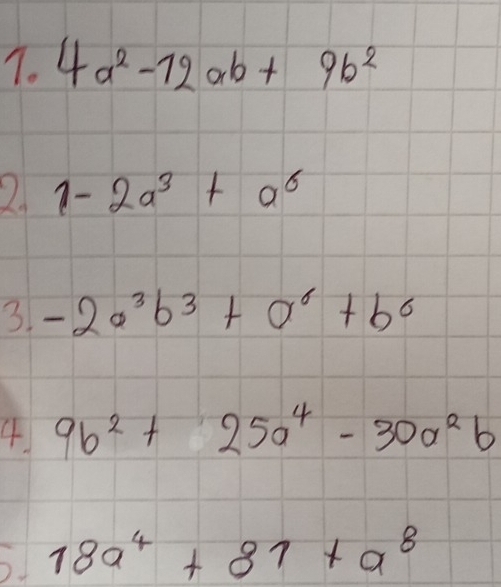 1. 4a² - 12ab + 9b²
2. 1 - 2a³ + a⁶
3. -2a³b³ + a⁶ + b⁶
4. 9b² + 25a⁴ - 30a²b
5. 18a⁴ + 81 + a⁸